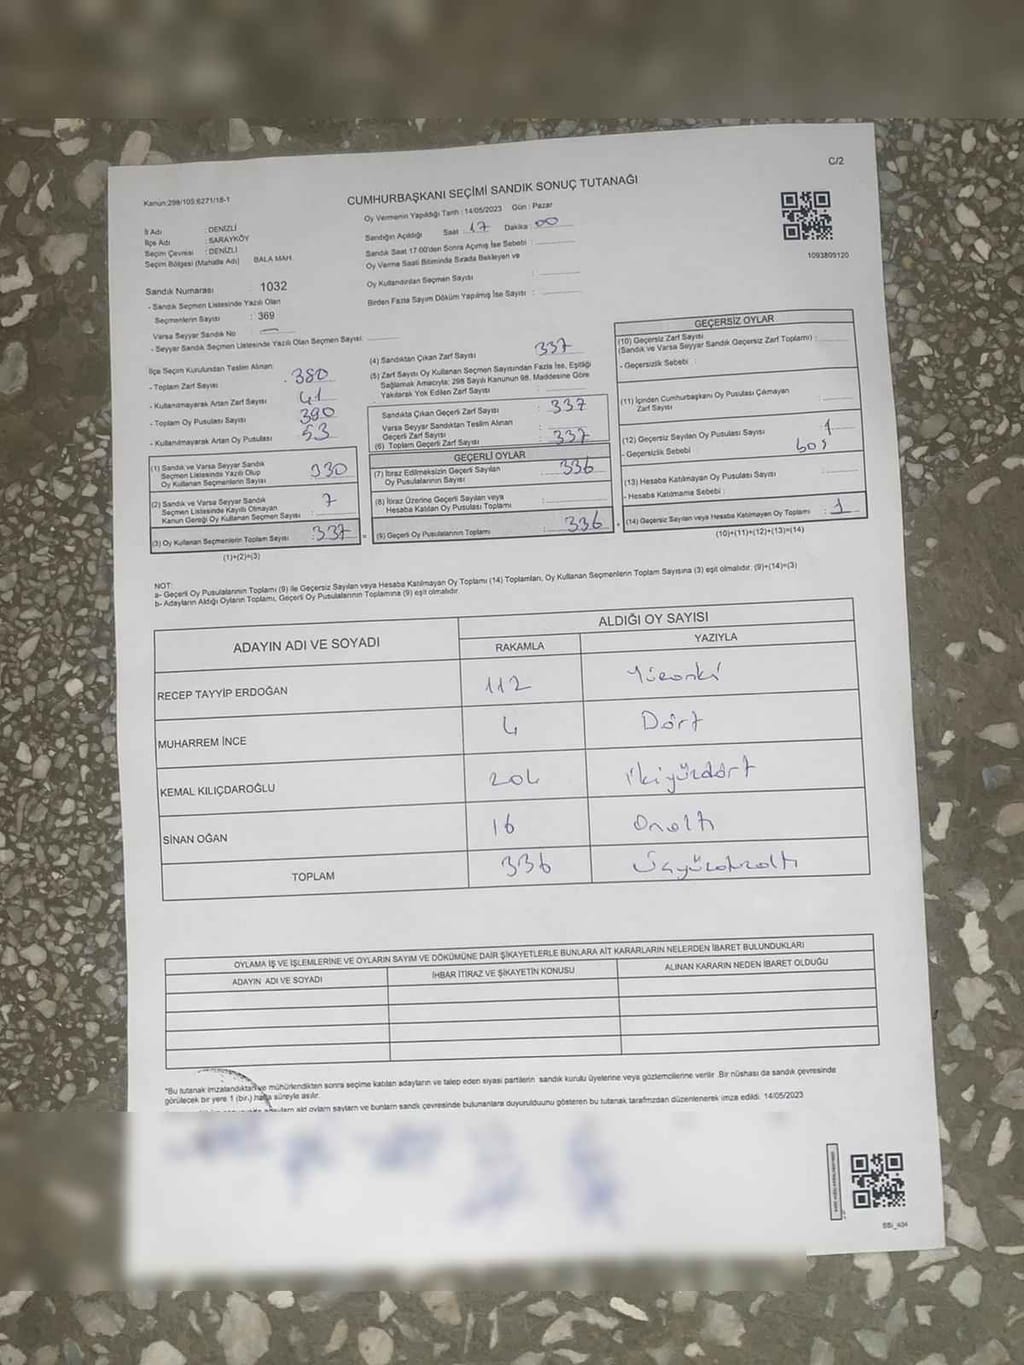 C/2
Kanun:298/105:6271/18-1
CUMHURBAŞKANI SEÇİMİ SANDIK SONUÇ TUTANAĞI
Oy Vermenin Yapıldığı Tarih : 14/05/2023 Gün : Pazar
İl Adı : DENİZLİ
İlçe Adı : SARAYKÖY
Seçim Çevresi : DENİZLİ
Seçim Bölgesi (Mahalle Adı) BALA MAH.
Sandığın Açıldığı Saat : 17 Dakika : 00
Sandık Saat 17:00'den Sonra Açılmış İse Sebebi :
Oy Verme Saati Bitiminde Sırada Bekleyen ve
Oy Kullandırılan Seçmen Sayısı :
Birden Fazla Sayım Döküm Yapılmış İse Sayısı :
1093809120
Sandık Numarası 1032
- Sandık Seçmen Listesinde Yazılı Olan
Seçmenlerin Sayısı : 369
Varsa Seyyar Sandık No :
- Seyyar Sandık Seçmen Listesinde Yazılı Olan Seçmen Sayısı:
İlçe Seçim Kurulundan Teslim Alınan
- Toplam Zarf Sayısı : 380
- Kullanılmayarak Artan Zarf Sayısı : 41
- Toplam Oy Pusulası Sayısı : 390
- Kullanılmayarak Artan Oy Pusulası : 53
(1) Sandık ve Varsa Seyyar Sandık
Seçmen Listesinde Yazılı Olup
Oy Kullanan Seçmenlerin Sayısı : 330
(2) Sandık ve Varsa Seyyar Sandık
Seçmen Listesinde Kayıtlı Olmayan
Kanun Gereği Oy Kullanan Seçmen Sayısı : 7
(3) Oy Kullanan Seçmenlerin Toplam Sayısı : 337
(1)+(2)=(3)
(4) Sandıktan Çıkan Zarf Sayısı : 337
(5) Zarf Sayısı Oy Kullanan Seçmen Sayısından Fazla İse, Eşitliği
Sağlamak Amacıyla; 298 Sayılı Kanunun 98. Maddesine Göre
Yakılarak Yok Edilen Zarf Sayısı :
Sandıkta Çıkan Geçerli Zarf Sayısı : 337
Varsa Seyyar Sandıktan Teslim Alınan
Geçerli Zarf Sayısı :
(6) Toplam Geçerli Zarf Sayısı : 337
GEÇERLİ OYLAR
(7) İtiraz Edilmeksizin Geçerli Sayılan
Oy Pusulalarının Sayısı : 336
(8) İtiraz Üzerine Geçerli Sayılan veya
Hesaba Katılan Oy Pusulası Toplamı :
(9) Geçerli Oy Pusulalarının Toplamı : 336
GEÇERSİZ OYLAR
(10) Geçersiz Zarf Sayısı
(Sandık ve Varsa Seyyar Sandık Geçersiz Zarf Toplamı) :
- Geçersizlik Sebebi :
(11) İçinden Cumhurbaşkanı Oy Pusulası Çıkmayan
Zarf Sayısı :
(12) Geçersiz Sayılan Oy Pusulası Sayısı : 1
- Geçersizlik Sebebi : boş
(13) Hesaba Katılmayan Oy Pusulası Sayısı :
- Hesaba Katılmama Sebebi :
(14) Geçersiz Sayılan veya Hesaba Katılmayan Oy Toplamı : 1
(10)+(11)+(12)+(13)=(14)
NOT:
a- Geçerli Oy Pusulalarının Toplamı (9) ile Geçersiz Sayılan veya Hesaba Katılmayan Oy Toplamı (14) Toplamları, Oy Kullanan Seçmenlerin Toplam Sayısına (3) eşit olmalıdır. (9)+(14)=(3)
b- Adayların Aldığı Oyların Toplamı, Geçerli Oy Pusulalarının Toplamına (9) eşit olmalıdır.
ADAYIN ADI VE SOYADI ALDIĞI OY SAYISI
RAKAMLA YAZIYLA
RECEP TAYYİP ERDOĞAN 112 Yüzoniki
MUHARREM İNCE 4 Dört
KEMAL KILIÇDAROĞLU 204 İkiyüzdört
SİNAN OĞAN 16 Onaltı
TOPLAM 336 Üçyüzotuzaltı
OYLAMA İŞ VE İŞLEMLERİNE VE OYLARIN SAYIM VE DÖKÜMÜNE DAİR ŞİKAYETLERLE BUNLARA AİT KARARLARIN NELERDEN İBARET BULUNDUKLARI
ADAYIN ADI VE SOYADI İHBAR İTİRAZ VE ŞİKAYETİN KONUSU ALINAN KARARIN NEDEN İBARET OLDUĞU
*Bu tutanak imzalandıktan ve mühürlendikten sonra seçime katılan adayların ve talep eden siyasi partilerin sandık kurulu üyelerine veya gözlemcilerine verilir .Bir nüshası da sandık çevresinde
görülecek bir yere 1 (bir.) hafta süreyle asılır.
bulunanlara duyurulduunu gösteren bu tutanak tarafımızdan düzenlenerek imza edildi. 14/05/2023